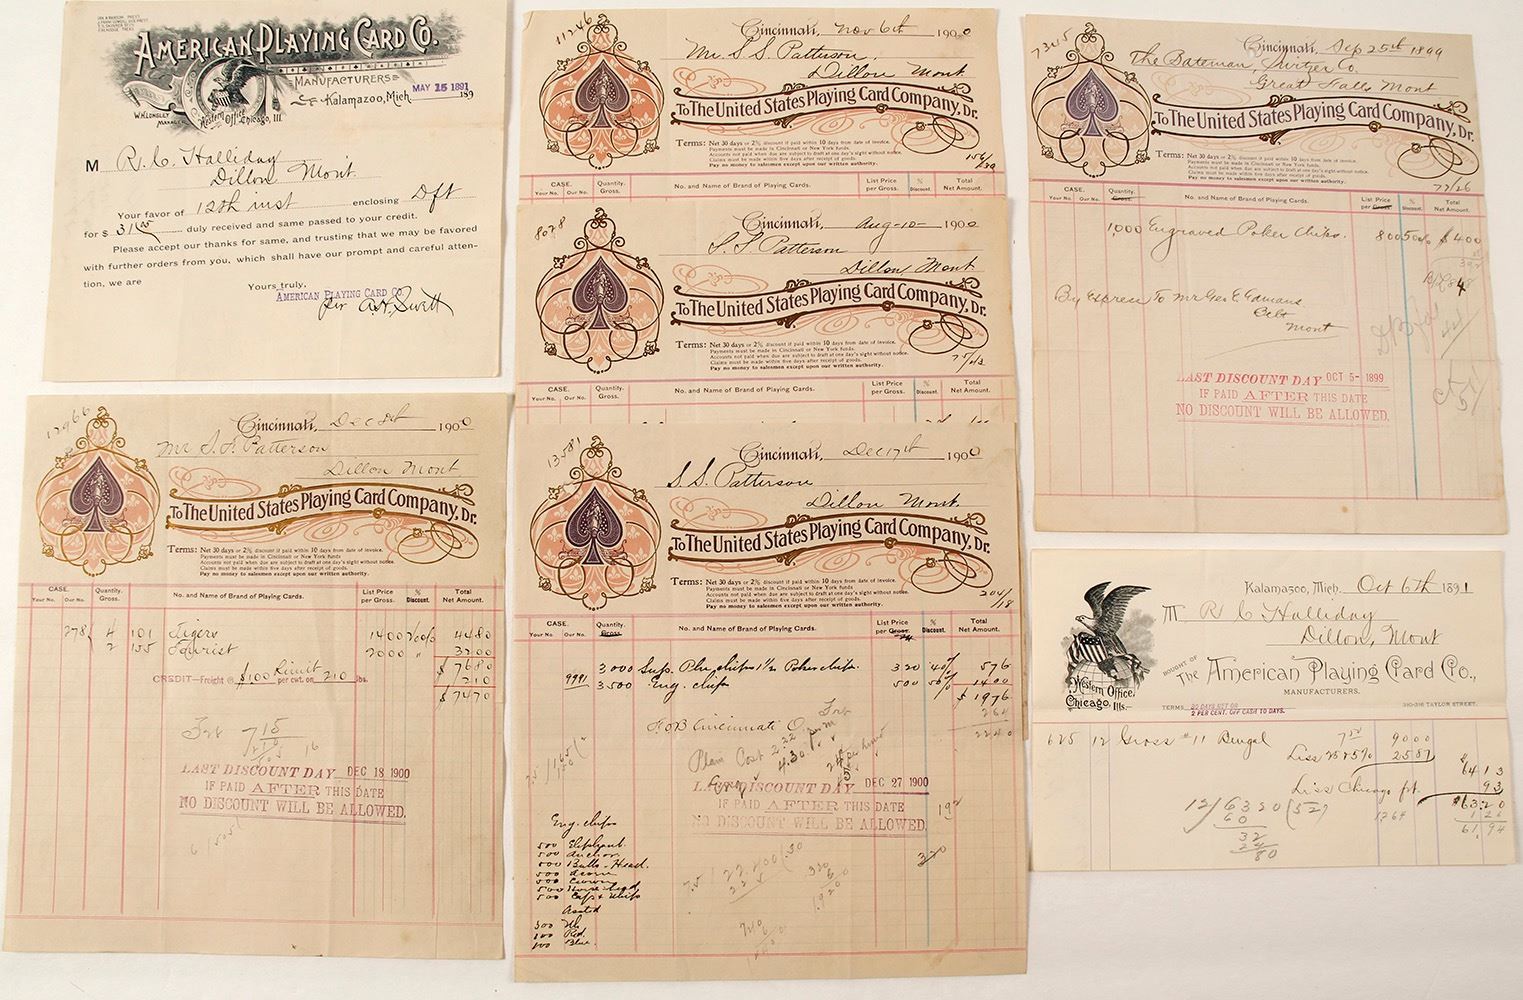 AMERICAN PLAYING CARD CO.
MANUFACTURERS
Kalamazoo, Mich. MAY 15 1891 189
W.H. LONSLEY
MANAGER
Western Office Chicago, Ill.
M R. C. Halliday
Dillon Mont.
Your favor of 12th inst enclosing Dft
for $ duly received and same passed to your credit.
Please accept our thanks for same, and trusting that we may be favored
with further orders from you, which shall have our prompt and careful atten-
tion, we are
Yours truly,
AMERICAN PLAYING CARD CO.
per A. H. Swett
11246
Cincinnati, Nov 6th 1900
Mr. S S Patterson,
Dillon Mont
To The United States Playing Card Company, Dr.
Terms: Net 30 days or 2% discount if paid within 10 days from date of invoice.
Payments must be made in Cincinnati or New York funds.
Accounts not paid when due are subject to draft at one day's sight without notice.
Claims must be made within five days after receipt of goods.
Pay no money to salesmen except upon our written authority.
CASE. Quantity. No. and Name of Brand of Playing Cards. List Price % Total
Your No. Our No. Gross. per Gross. Discount. Net Amount.
8078
Cincinnati, Aug-10- 1900
S. S Patterson
Dillon, Mont
To The United States Playing Card Company, Dr.
Terms: Net 30 days or 2% discount if paid within 10 days from date of invoice.
Payments must be made in Cincinnati or New York funds.
Accounts not paid when due are subject to draft at one day's sight without notice.
Claims must be made within five days after receipt of goods.
Pay no money to salesmen except upon our written authority.
75/43
CASE. Quantity. No. and Name of Brand of Playing Cards. List Price % Total
Your No. Our No. Gross. per Gross. Discount. Net Amount.
73415
Cincinnati, Sep 25th 1899
The Bateman, Switzer Co.
Great Falls Mont
To The United States Playing Card Company, Dr.
Terms: Net 30 days or 2% discount if paid within 10 days from date of invoice.
Payments must be made in Cincinnati or New York funds.
Accounts not paid when due are subject to draft at one day's sight without notice.
Claims must be made within five days after receipt of goods.
Pay no money to salesmen except upon our written authority.
77/26
CASE. Quantity. No. and Name of Brand of Playing Cards. List Price % Total
Your No. Our No. Gross. per Gross. Discount. Net Amount.
1,000 Engraved Poker Chips. 800 50% $ 400
By Express To Mr Geo E
Mont
LAST DISCOUNT DAY OCT 5- 1899
IF PAID AFTER THIS DATE
NO DISCOUNT WILL BE ALLOWED.
12966
Cincinnati, Dec 8th 1900
Mr S. S. Patterson
Dillon Mont
To The United States Playing Card Company, Dr.
Terms: Net 30 days or 2% discount if paid within 10 days from date of invoice.
Payments must be made in Cincinnati or New York funds
Accounts not paid when due are subject to draft at one day's sight without notice.
Claims must be made within five days after receipt of goods.
Pay no money to salesmen except upon our written authority.
CASE. Quantity. No. and Name of Brand of Playing Cards. List Price % Total
Your No. Our No. Gross. per Gross. Discount. Net Amount.
278 4 101 Tigers 1400 60% 4480
2 155 Tourist 2000 " 3200
Limit $ 7680
CREDIT—Freight @ $1.00 per cwt. on 210 lbs. 210
$ 7470
LAST DISCOUNT DAY DEC 18 1900
IF PAID AFTER THIS DATE
NO DISCOUNT WILL BE ALLOWED.
13581
Cincinnati, Dec 17th 1900
S. S. Patterson
Dillon Mont.
To The United States Playing Card Company, Dr.
Terms: Net 30 days or 2% discount if paid within 10 days from date of invoice.
Payments must be made in Cincinnati or New York funds.
Accounts not paid when due are subject to draft at one day's sight without notice.
Claims must be made within five days after receipt of goods.
Pay no money to salesmen except upon our written authority.
204/18
CASE. Quantity. No. and Name of Brand of Playing Cards. List Price % Total
Your No. Our No. Gross. per Gross. Discount. Net Amount.
3,000 Sup. Pln. chips 1½ Poker chips. 320 40% 576
9991 3,500 Eng. chips 500 50% 1400
$ 1976
F.O.B Cincinnati O.
Plain Cost 2.22 per M
LAST DISCOUNT DAY DEC 27 1900
IF PAID AFTER THIS DATE
NO DISCOUNT WILL BE ALLOWED.
Eng. chips
500 Elephant.
500 Anchor
500 Bulls-Head.
500 Acorn
500 Crown
500 Horse head
500 Caps & Whips
Assted
300 Wh
100 Red.
100 Blue.
Kalamazoo, Mich. Oct 6th 1891
M R C Halliday
Dillon, Mont
BOUGHT OF The American Playing Card Co.,
MANUFACTURERS.
Western Office,
Chicago, Ills.
TERMS 30 DAYS NET OR
2 PER CENT. OFF CASH 10 DAYS.
310-316 TAYLOR STREET.
625 12 Gross #11 Bengal 7 50 90 00
Less 25 87 64 13
Less Chicago frt. 93
$ 63 20
1 26
61.94